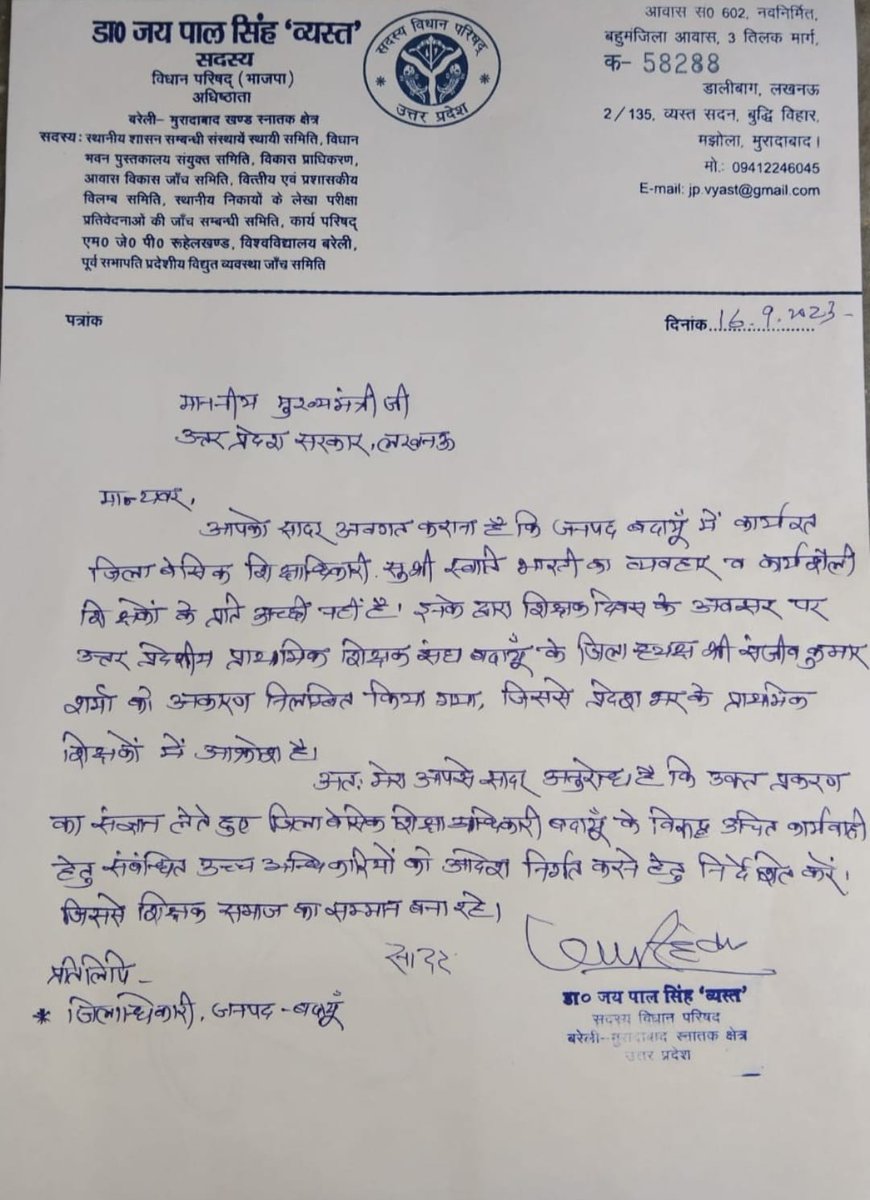 डा0 जय पाल सिंह ‘व्यस्त’
सदस्य
विधान परिषद् (भाजपा)
अधिष्ठाता
बरेली- मुरादाबाद खण्ड स्नातक क्षेत्र
सदस्य : स्थानीय शासन सम्बन्धी संस्थायें स्थायी समिति, विधान
भवन पुस्तकालय संयुक्त समिति, विकास प्राधिकरण,
आवास विकास जाँच समिति, वित्तीय एवं प्रशासकीय
विलम्ब समिति, स्थानीय निकायों के लेखा परीक्षा
प्रतिवेदनाओं की जाँच सम्बन्धी समिति, कार्य परिषद्
एम0 जे0 पी0 रूहेलखण्ड, विश्वविद्यालय बरेली,
पूर्व सभापति प्रदेशीय विद्युत व्यवस्था जाँच समिति
सदस्य विधान परिषद्
उत्तर प्रदेश
आवास स0 602, नवनिर्मित,
बहुमंजिला आवास, 3 तिलक मार्ग,
क- 58288
डालीबाग, लखनऊ
2/135, व्यस्त सदन, बुद्धि विहार,
मझोला, मुरादाबाद।
मो.: 09412246045
E-mail: jp.vyast@gmail.com
पत्रांक
दिनांक 16.9.2023-
माननीय मुख्यमंत्री जी
उत्तर प्रदेश सरकार, लखनऊ
मान्यवर,
आपको सादर अवगत कराना है कि जनपद बदायूँ में कार्यरत
जिला बेसिक शिक्षाधिकारी सुश्री स्वाति भारती का व्यवहार व कार्यशैली
शिक्षकों के प्रति अच्छी नहीं है। इनके द्वारा शिक्षक दिवस के अवसर पर
उत्तर प्रदेशीय प्राथमिक शिक्षक संघ बदायूँ के जिलाध्यक्ष श्री संजीव कुमार
शर्मा को अकारण निलम्बित किया गया, जिससे प्रदेश भर के प्राथमिक
शिक्षकों में आक्रोश है।
अतः मेरा आपसे सादर अनुरोध है कि उक्त प्रकरण
का संज्ञान लेते हुए जिला बेसिक शिक्षा अधिकारी बदायूँ के विरूद्ध उचित कार्यवाही
हेतु संबंधित उच्च अधिकारियों को आदेश निर्गत करने हेतु निर्देशित करें।
जिससे शिक्षक समाज का सम्मान बना रहे।
सादर
प्रतिलिपि -
* जिलाधिकारी, जनपद - बदायूँ
डा० जय पाल सिंह ‘व्यस्त’
सदस्य विधान परिषद
बरेली-मुरादाबाद स्नातक क्षेत्र
उत्तर प्रदेश